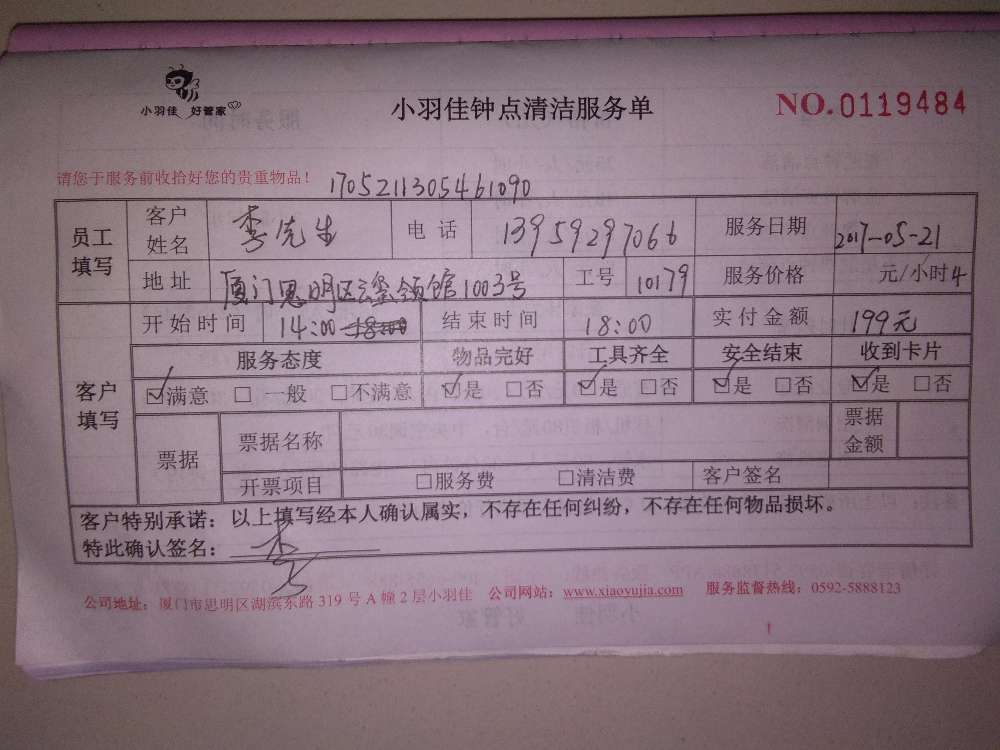 小羽佳 好管家
小羽佳钟点清洁服务单
NO.0119484
请您于服务前收拾好您的贵重物品！ 1705211305461090
员工填写 客户姓名 李先生 电话 13959297066 服务日期 2017-05-21
地址 厦门思明区 领馆1003号 工号 10179 服务价格 元/小时4
客户填写 开始时间 14:00 结束时间 18:00 实付金额 199元
服务态度 物品完好 工具齐全 安全结束 收到卡片
☑满意 □一般 □不满意 ☑是 □否 ☑是 □否 ☑是 □否 ☑是 □否
票据 票据名称 票据金额
开票项目 □服务费 □清洁费 客户签名
客户特别承诺：以上填写经本人确认属实，不存在任何纠纷，不存在任何物品损坏。
特此确认签名：李
公司地址：厦门市思明区湖滨东路319号A幢2层小羽佳 公司网站：www.xiaoyujia.com 服务监督热线：0592-5888123